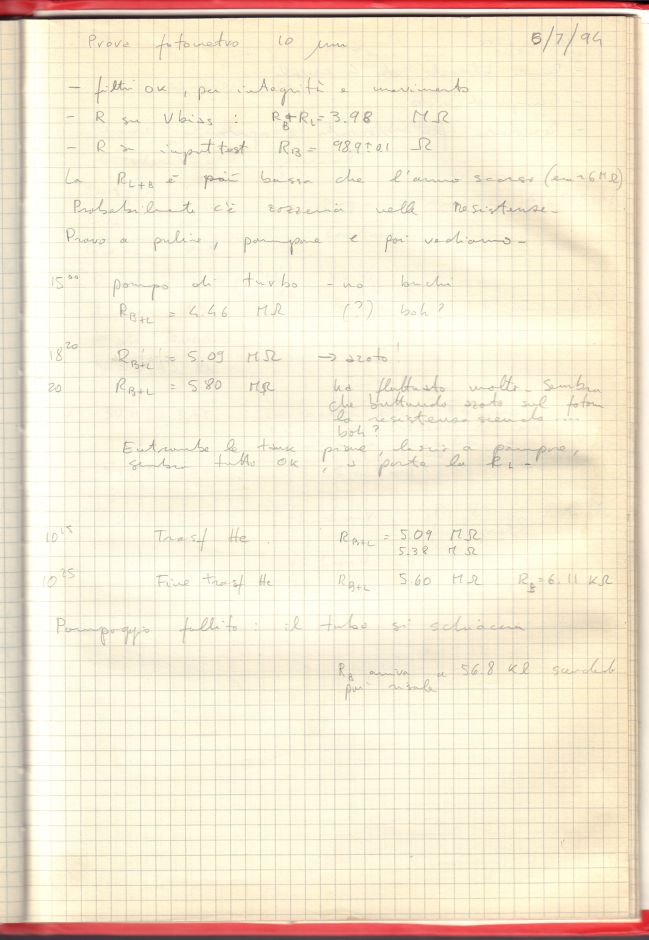 Prova fotometro 10 µm 5/7/94
- filtri OK, per integrità e movimento
- R su Vbias : R_B+R_L = 3.98 MΩ
- R su input test R_B = Ω
La R_L+B è più bassa che l'anno scorso (era ~6 MΩ)
Probabilmente c'è zozzeria nelle resistenze.
Provo a pulire, pompare e poi vediamo -
15⁰⁰ pompo di turbo - no buchi
R_B+L = 4.46 MΩ (?) boh?
18²⁰ R_B+L = 5.09 MΩ → azoto!
20 R_B+L = 5.80 MΩ ha fluttuato molto. Sembra
che buttando azoto sul fotom
la resistenza scenda ....
boh?
Entrambe le tank piene, lascio a pompare,
sembra tutto OK, a parte la R_L -
10¹⁵ Trasf He. R_B+L = 5.09 MΩ
5.38 MΩ
10²⁵ Fine trasf He R_B+L 5.60 MΩ R_B = 6.11 KΩ
Pompaggio fallito: il tubo si schiaccia
R_B arriva a 56.8 KΩ
poi risale